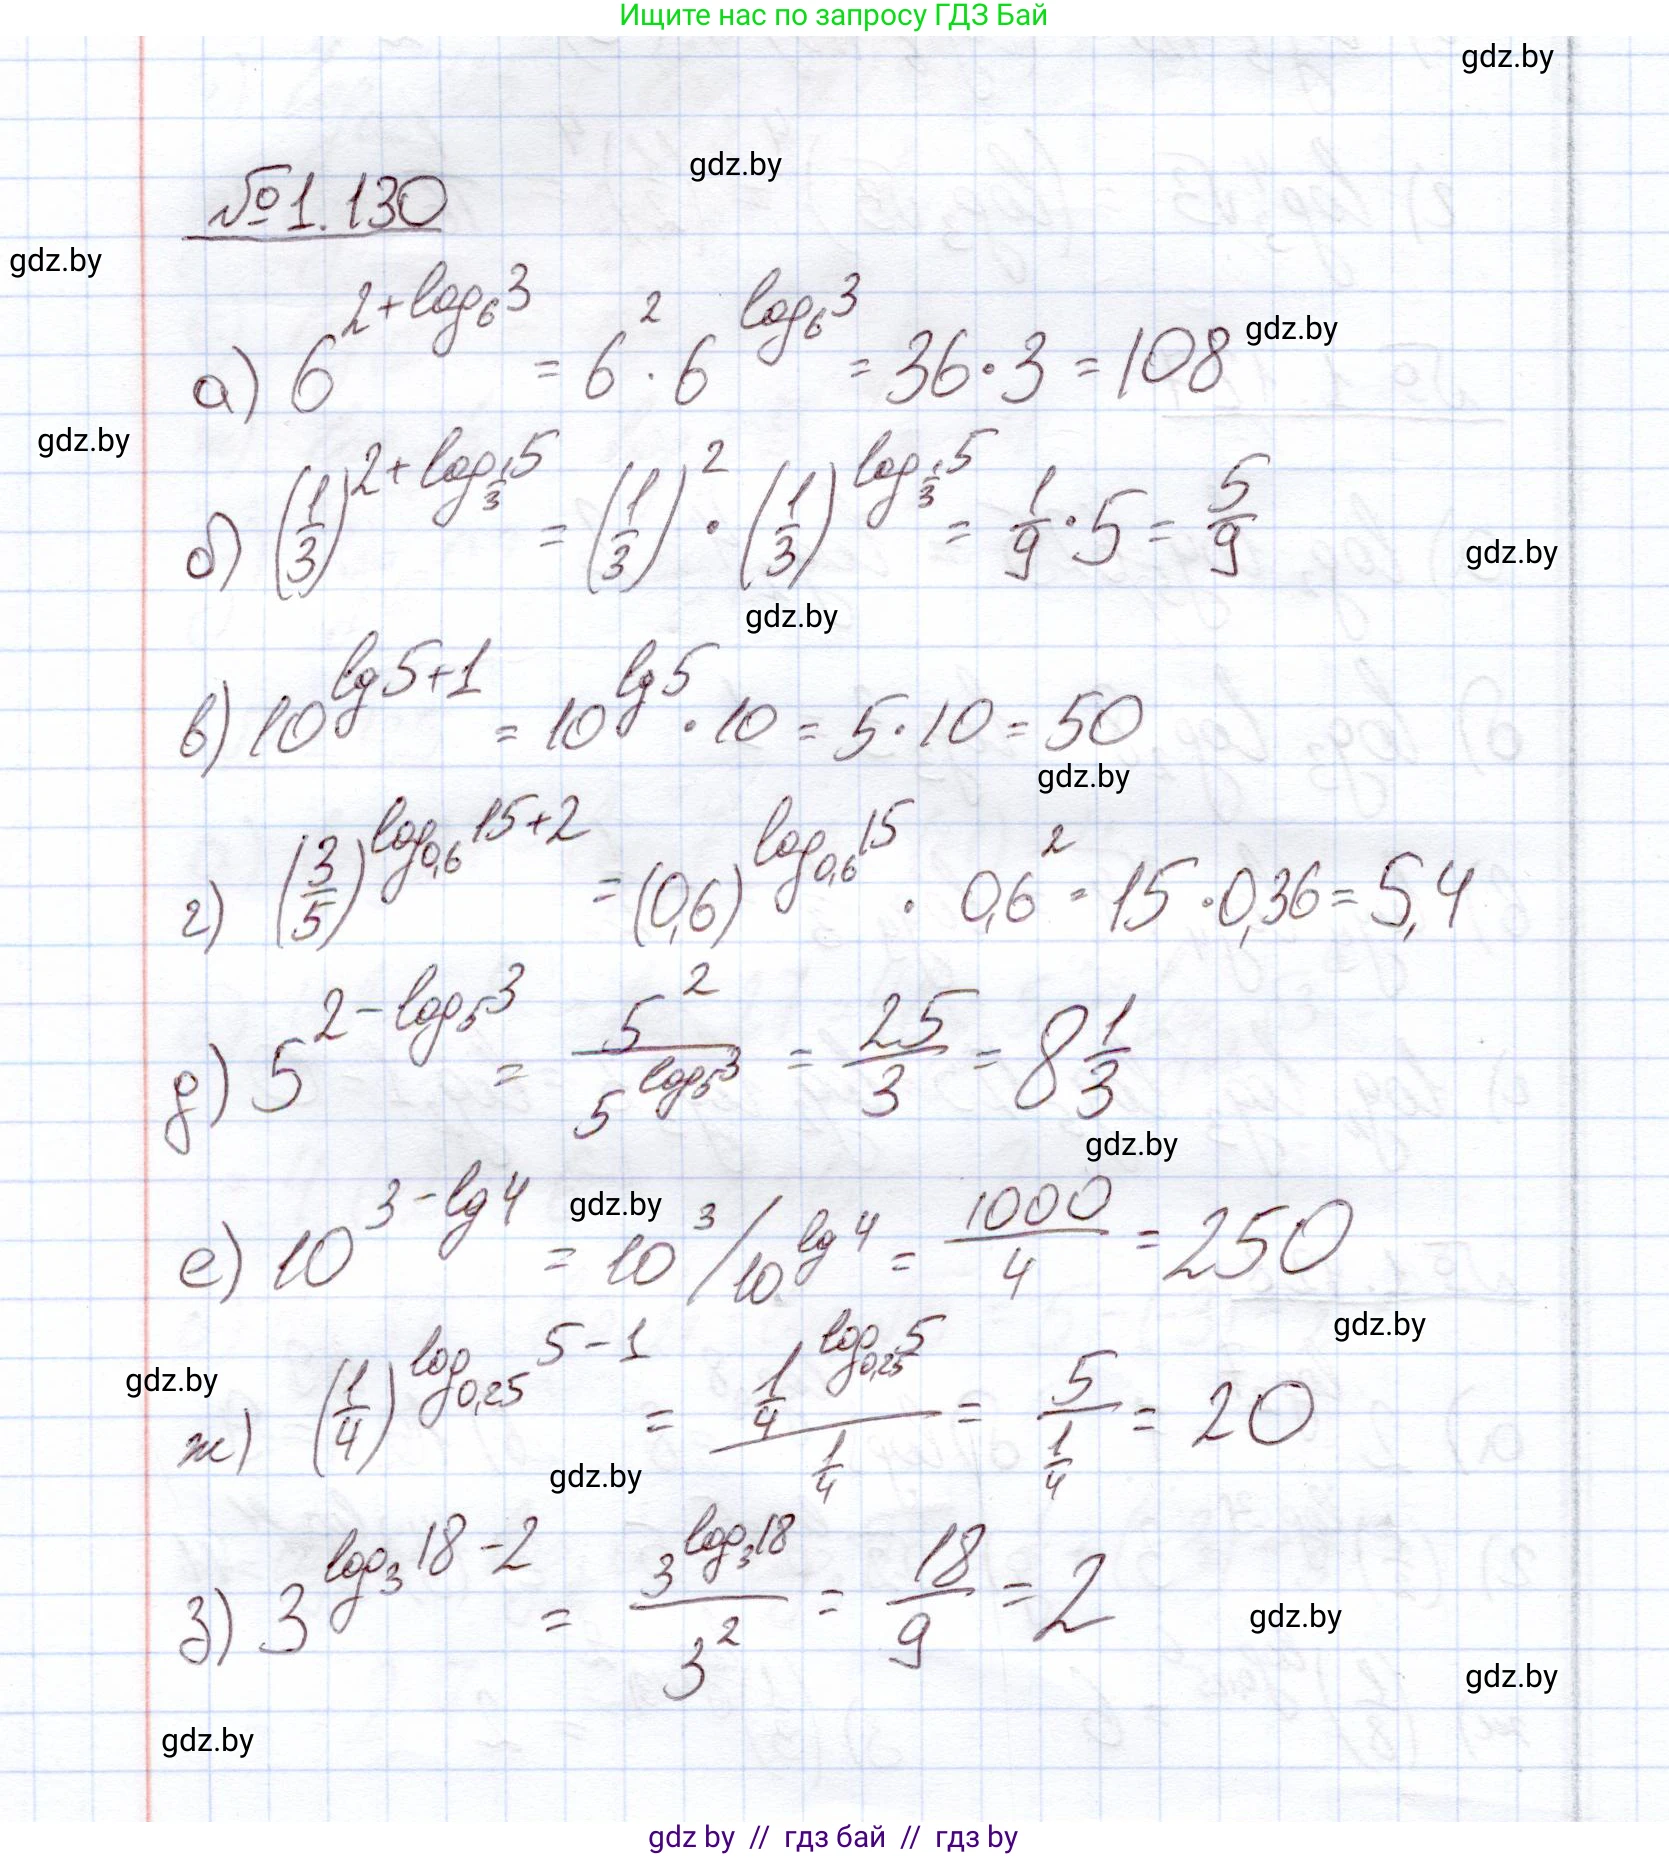 Ищите нас по запросу ГДЗ Бай
gdz.by
gdz.by
№1.130
gdz.by
а) 6^{2+log_6 3} = 6^2 · 6^{log_6 3} = 36 · 3 = 108
gdz.by
gdz.by
б) (1/3)^{2+log_{1/3} 5} = (1/3)^2 · (1/3)^{log_{1/3} 5} = 1/9 · 5 = 5/9
gdz.by
gdz.by
в) 10^{lg5+1} = 10^{lg5} · 10 = 5 · 10 = 50
gdz.by
г) (3/5)^{log_{0,6} 15+2} = (0,6)^{log_{0,6} 15} · 0,6^2 = 15 · 0,36 = 5,4
д) 5^{2-log_5 3} = 5^2/5^{log_5 3} = 25/3 = 8 1/3
gdz.by
gdz.by
е) 10^{3-lg4} = 10^3/10^{lg4} = 1000/4 = 250
gdz.by
gdz.by
ж) (1/4)^{log_{0,25} 5-1} = (1/4^{log_{0,25} 5})/(1/4) = 5/(1/4) = 20
gdz.by
з) 3^{log_3 18-2} = 3^{log_3 18}/3^2 = 18/9 = 2
gdz.by
gdz.by
gdz.by
gdz by // гдз бай // гдз by